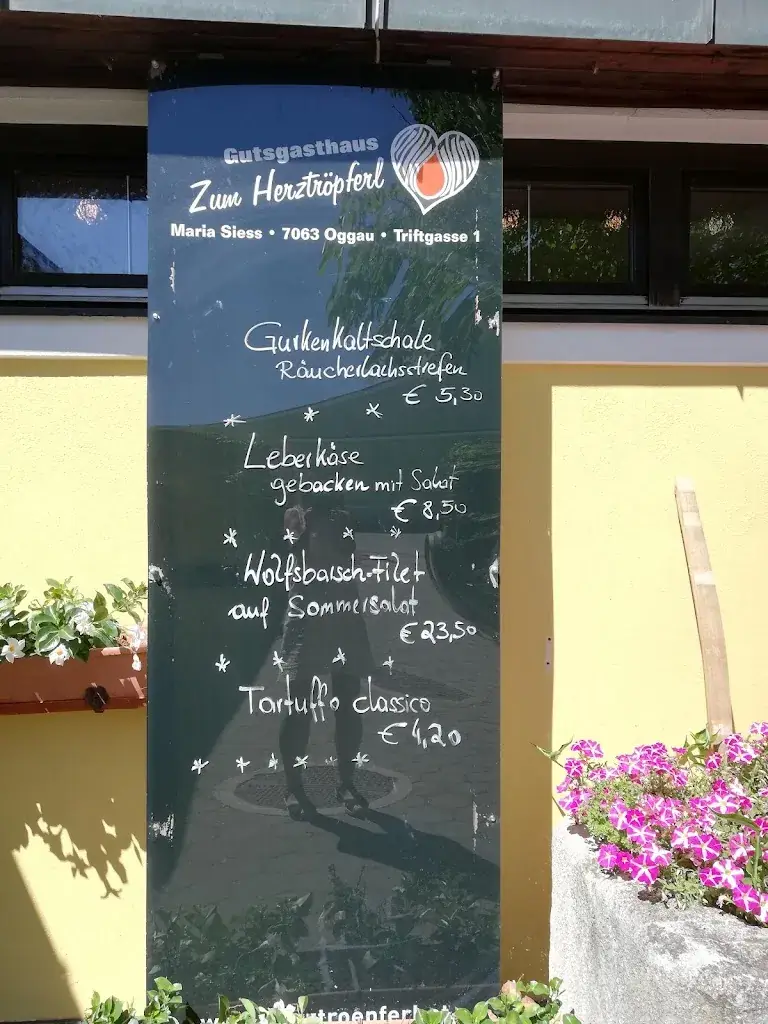 Gutsgasthaus
Zum Herztröpferl
Maria Siess • 7063 Oggau • Triftgasse 1
Gurkenkaltschale
Räucherlachsstreifen
€ 5,30
* * *
Leberkäse
gebacken mit Salat
€ 8,50
* * * *
Wolfsbarsch-Filet
auf Sommersalat
€ 23,50
* * * *
Tartuffo classico
€ 4,20
* * * * *